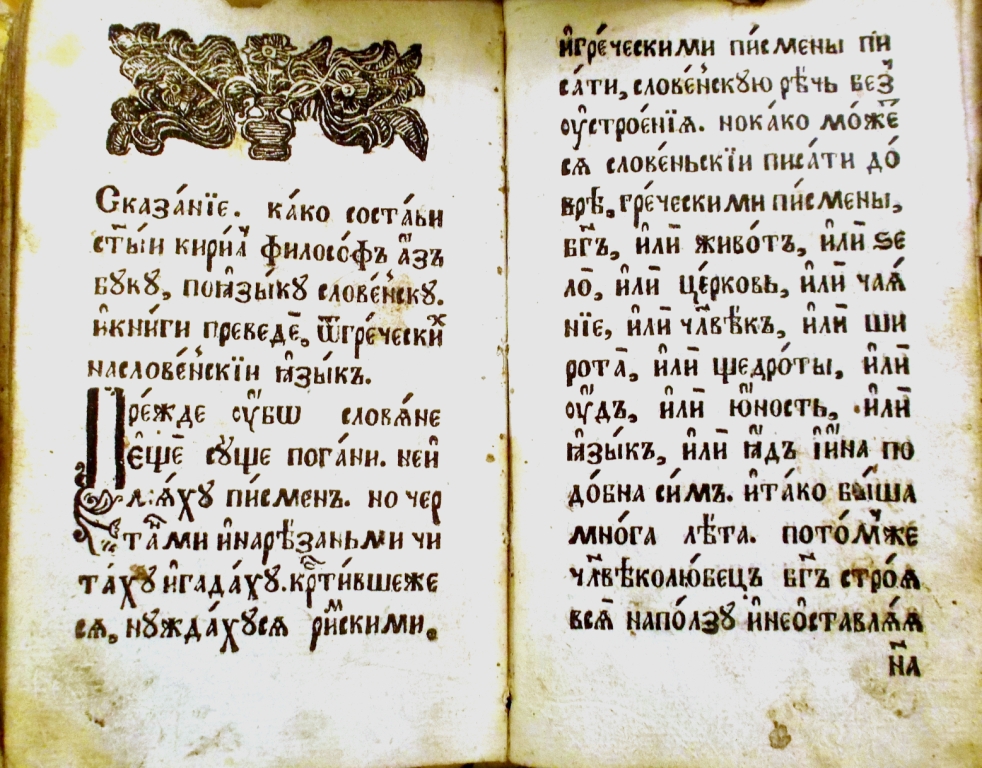 Сказа́нїе. ка́ко соста́ви
ст҃ы́й кири́лъ філосо́фъ а҆́зъ
бꙋкꙋ, поꙗ҆зы́кꙋ слове́нскꙋ.
и҆кни́ги преведѐ, ѿгре́ческих
насловѐнскїи ꙗ҆зы́къ.
Пре́жде ᲂу҆́бѡ словѧ́не
е҆щѐ сꙋще пога́ни. неи҆
мѧ́хꙋ пи́сменъ. но чер
та́ми и҆нарѣ́заньми чи
та́хꙋ и҆гада́хꙋ. крⷭ҇ти́вшеже
сѧ, нꙋжда́хꙋсѧ ри́мскими,
и҆гре́ческими пи́смены пи
са́ти, слове́нскꙋю рѣ́чь без̾
ᲂу҆строе́нїѧ. нока́ко мо́же
сѧ слове́ньскїи писа́ти до́
брѣ, гре́ческими пи́смены,
бг҃ъ, и҆лѝ живо́тъ, и҆лѝ ѕе
ло̀, и҆лѝ це́рковь, и҆лѝ чаѧ́
нїе, и҆лѝ чл҃вѣ́къ, и҆лѝ ши
рота̀, и҆лѝ щедро́ты, и҆лѝ
ᲂу҆́дъ, и҆лѝ ю҆́ность, и҆лѝ
ꙗ҆зы́къ, и҆лѝ ꙗ҆́дъ і҆и҆́на по
до́бна си́мъ. и҆та́ко бы́ша
мно́га лѣ́та. пото́мже
чл҃вѣколю́бецъ бг҃ъ стро́ѧ
всѧ̀ напо́лзꙋ и҆неѡ҆ставлѧ́ѧ
на